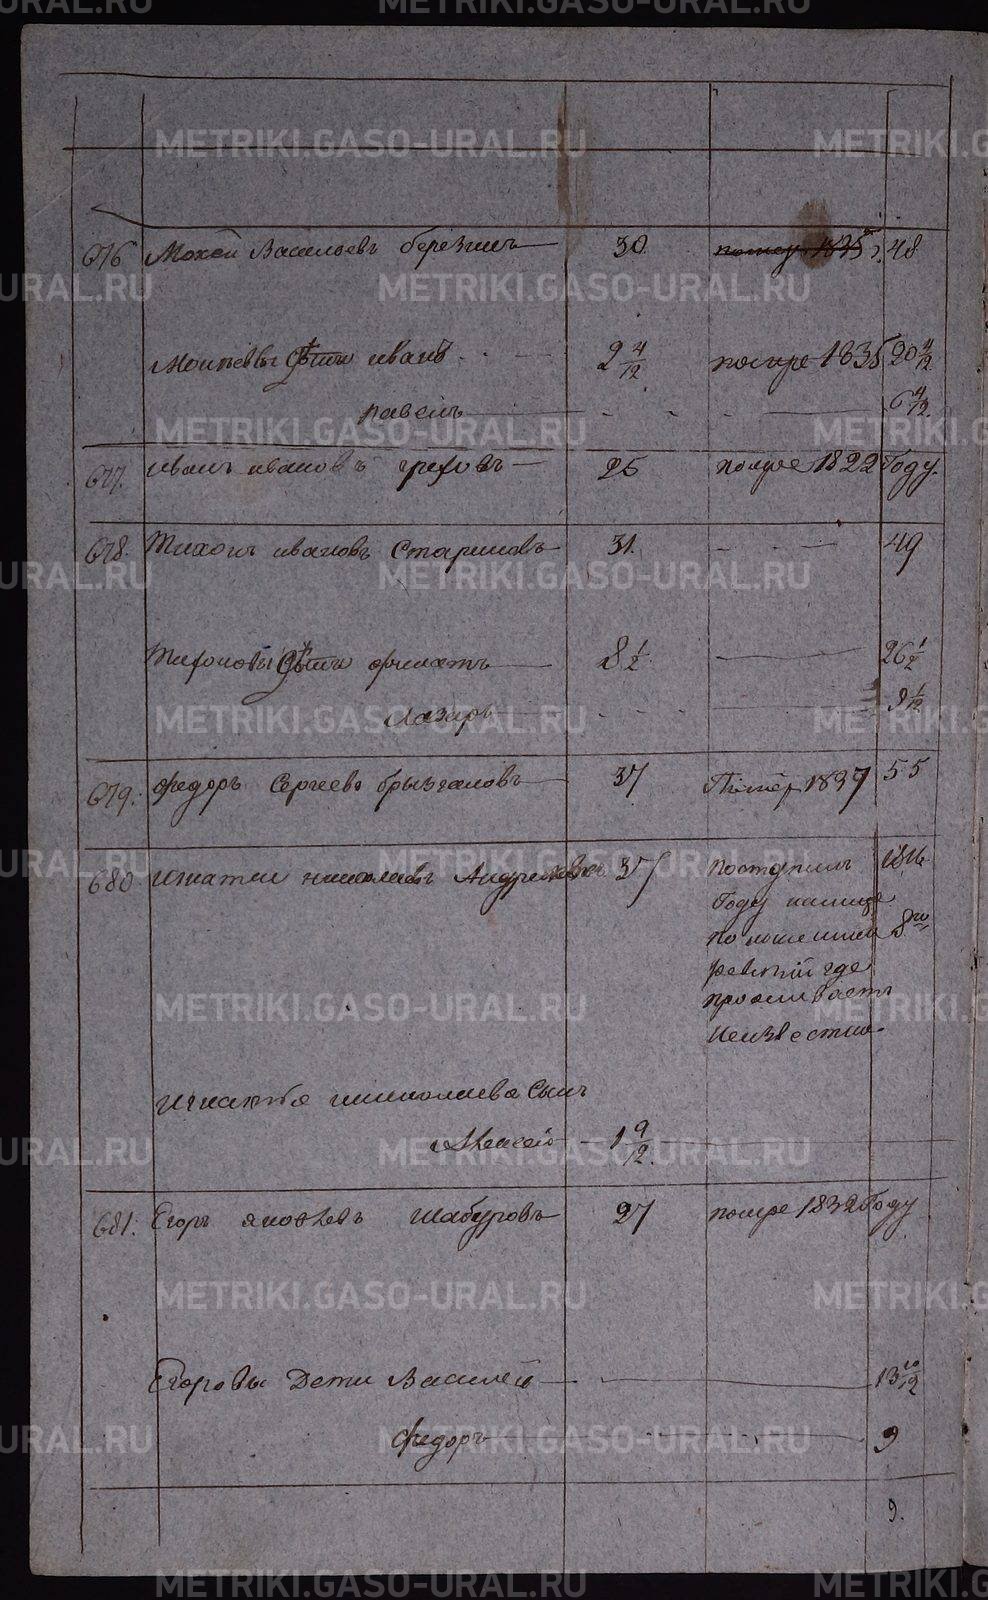 676 Мокей Васильевъ березинъ 30 помер 1835 48
Мокиевы Дѣти иванъ 2 4/12 помре 1835 20 4/12
павелъ 6 4/12
677. иванъ ивановъ греховъ 25 помре 1822 Году.
678. Тихонъ ивановъ Стариковъ 31. 49
Тихоновы Дѣти филатъ 8 1/2 26 1/2
Лазарь 9 1/12
679. Федоръ Сергеевъ брызгаловъ 37 1837 55
680 игнатеи николаевъ 37 Поступилъ
Году
по нынешней 8ю
ревизии где
проживаетъ
Неизвестно.
николаева Сынъ
Алексей 1 9/12.
681. Егоръ яковлевъ Шабуровъ 27 помре 1832 Году
Егоровы Дети Василей 13 10/12
Федоръ 9
9.